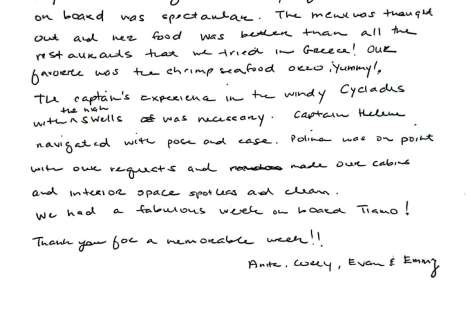 on board was spectacular. The menu was thought
out and her food was better than all the
restaurants that we tried in Greece! Our
favorite was the shrimp seafood orzo, Yummy!,
The captain's experience in the windy Cyclades
with the high swells was necessary. Captain Helene
navigated with pose and ease. Polina was on point
with our requests and made our cabins
and interior space spotless and clean.
We had a fabulous week on board Tiamo!
Thank you for a memorable week!!
Anita, , Evan & Emmy